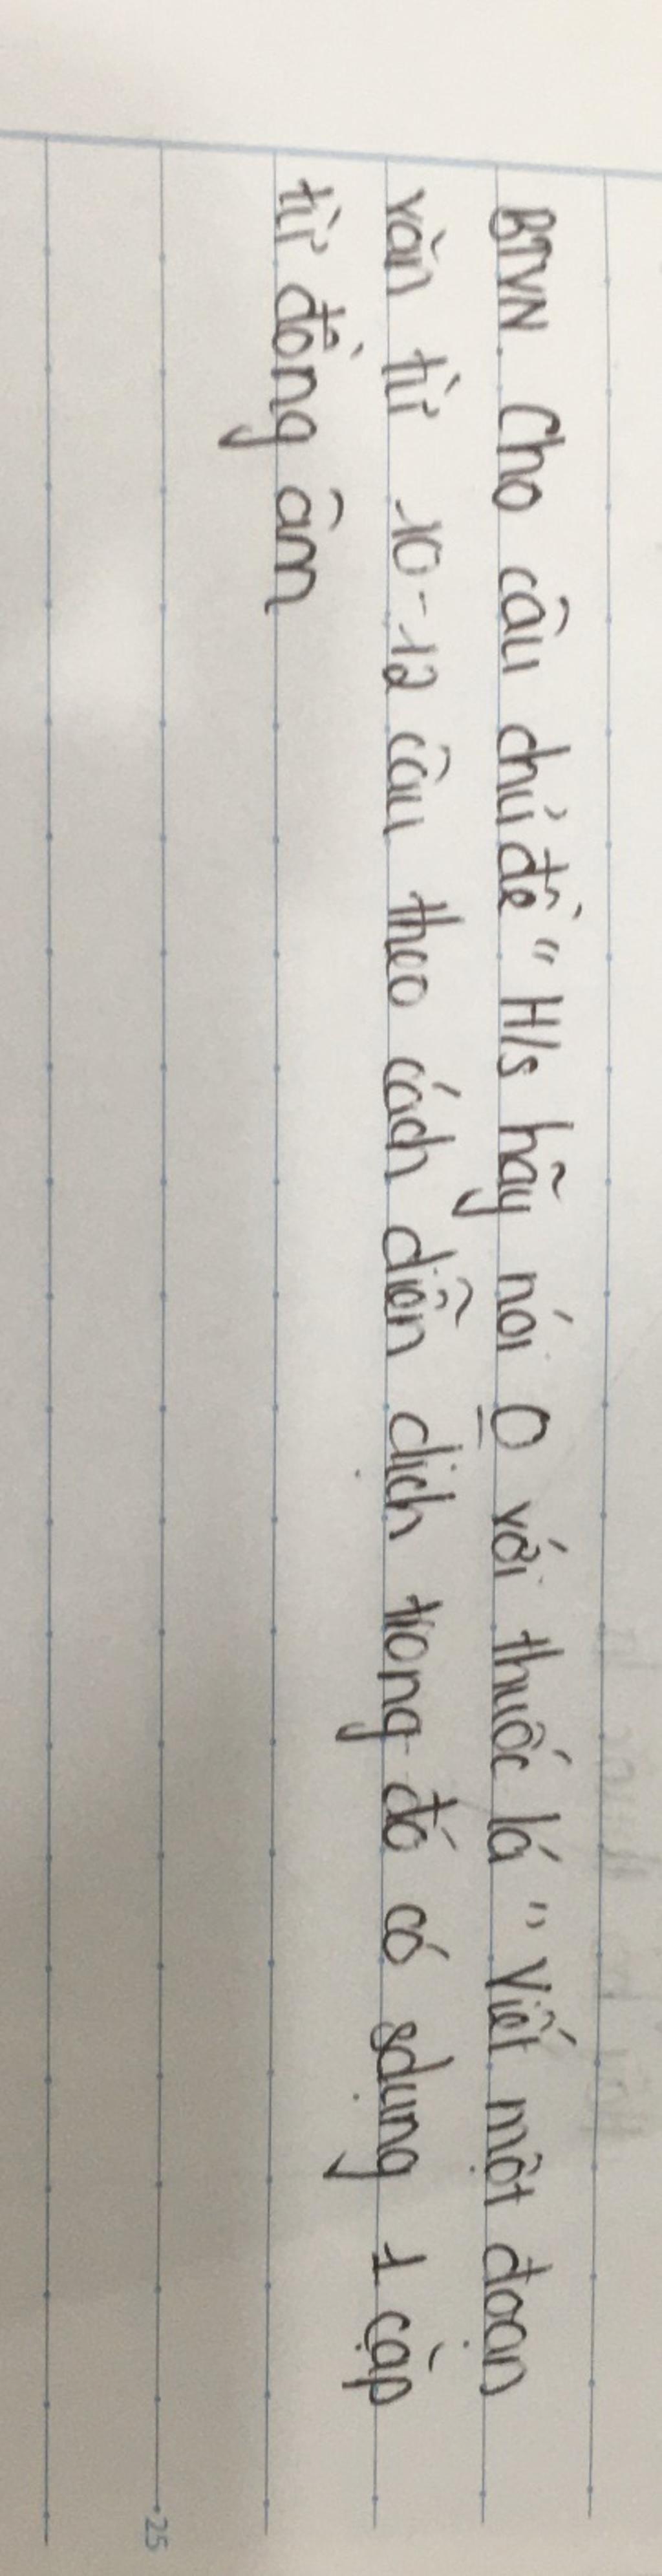 BTVN. Cho câu chủ đề "H/s hãy nói O với thuốc lá" Viết một đoạn
văn từ 10-12 câu theo cách diễn dịch trong đó có sdụng 1 cặp
từ đồng âm
25